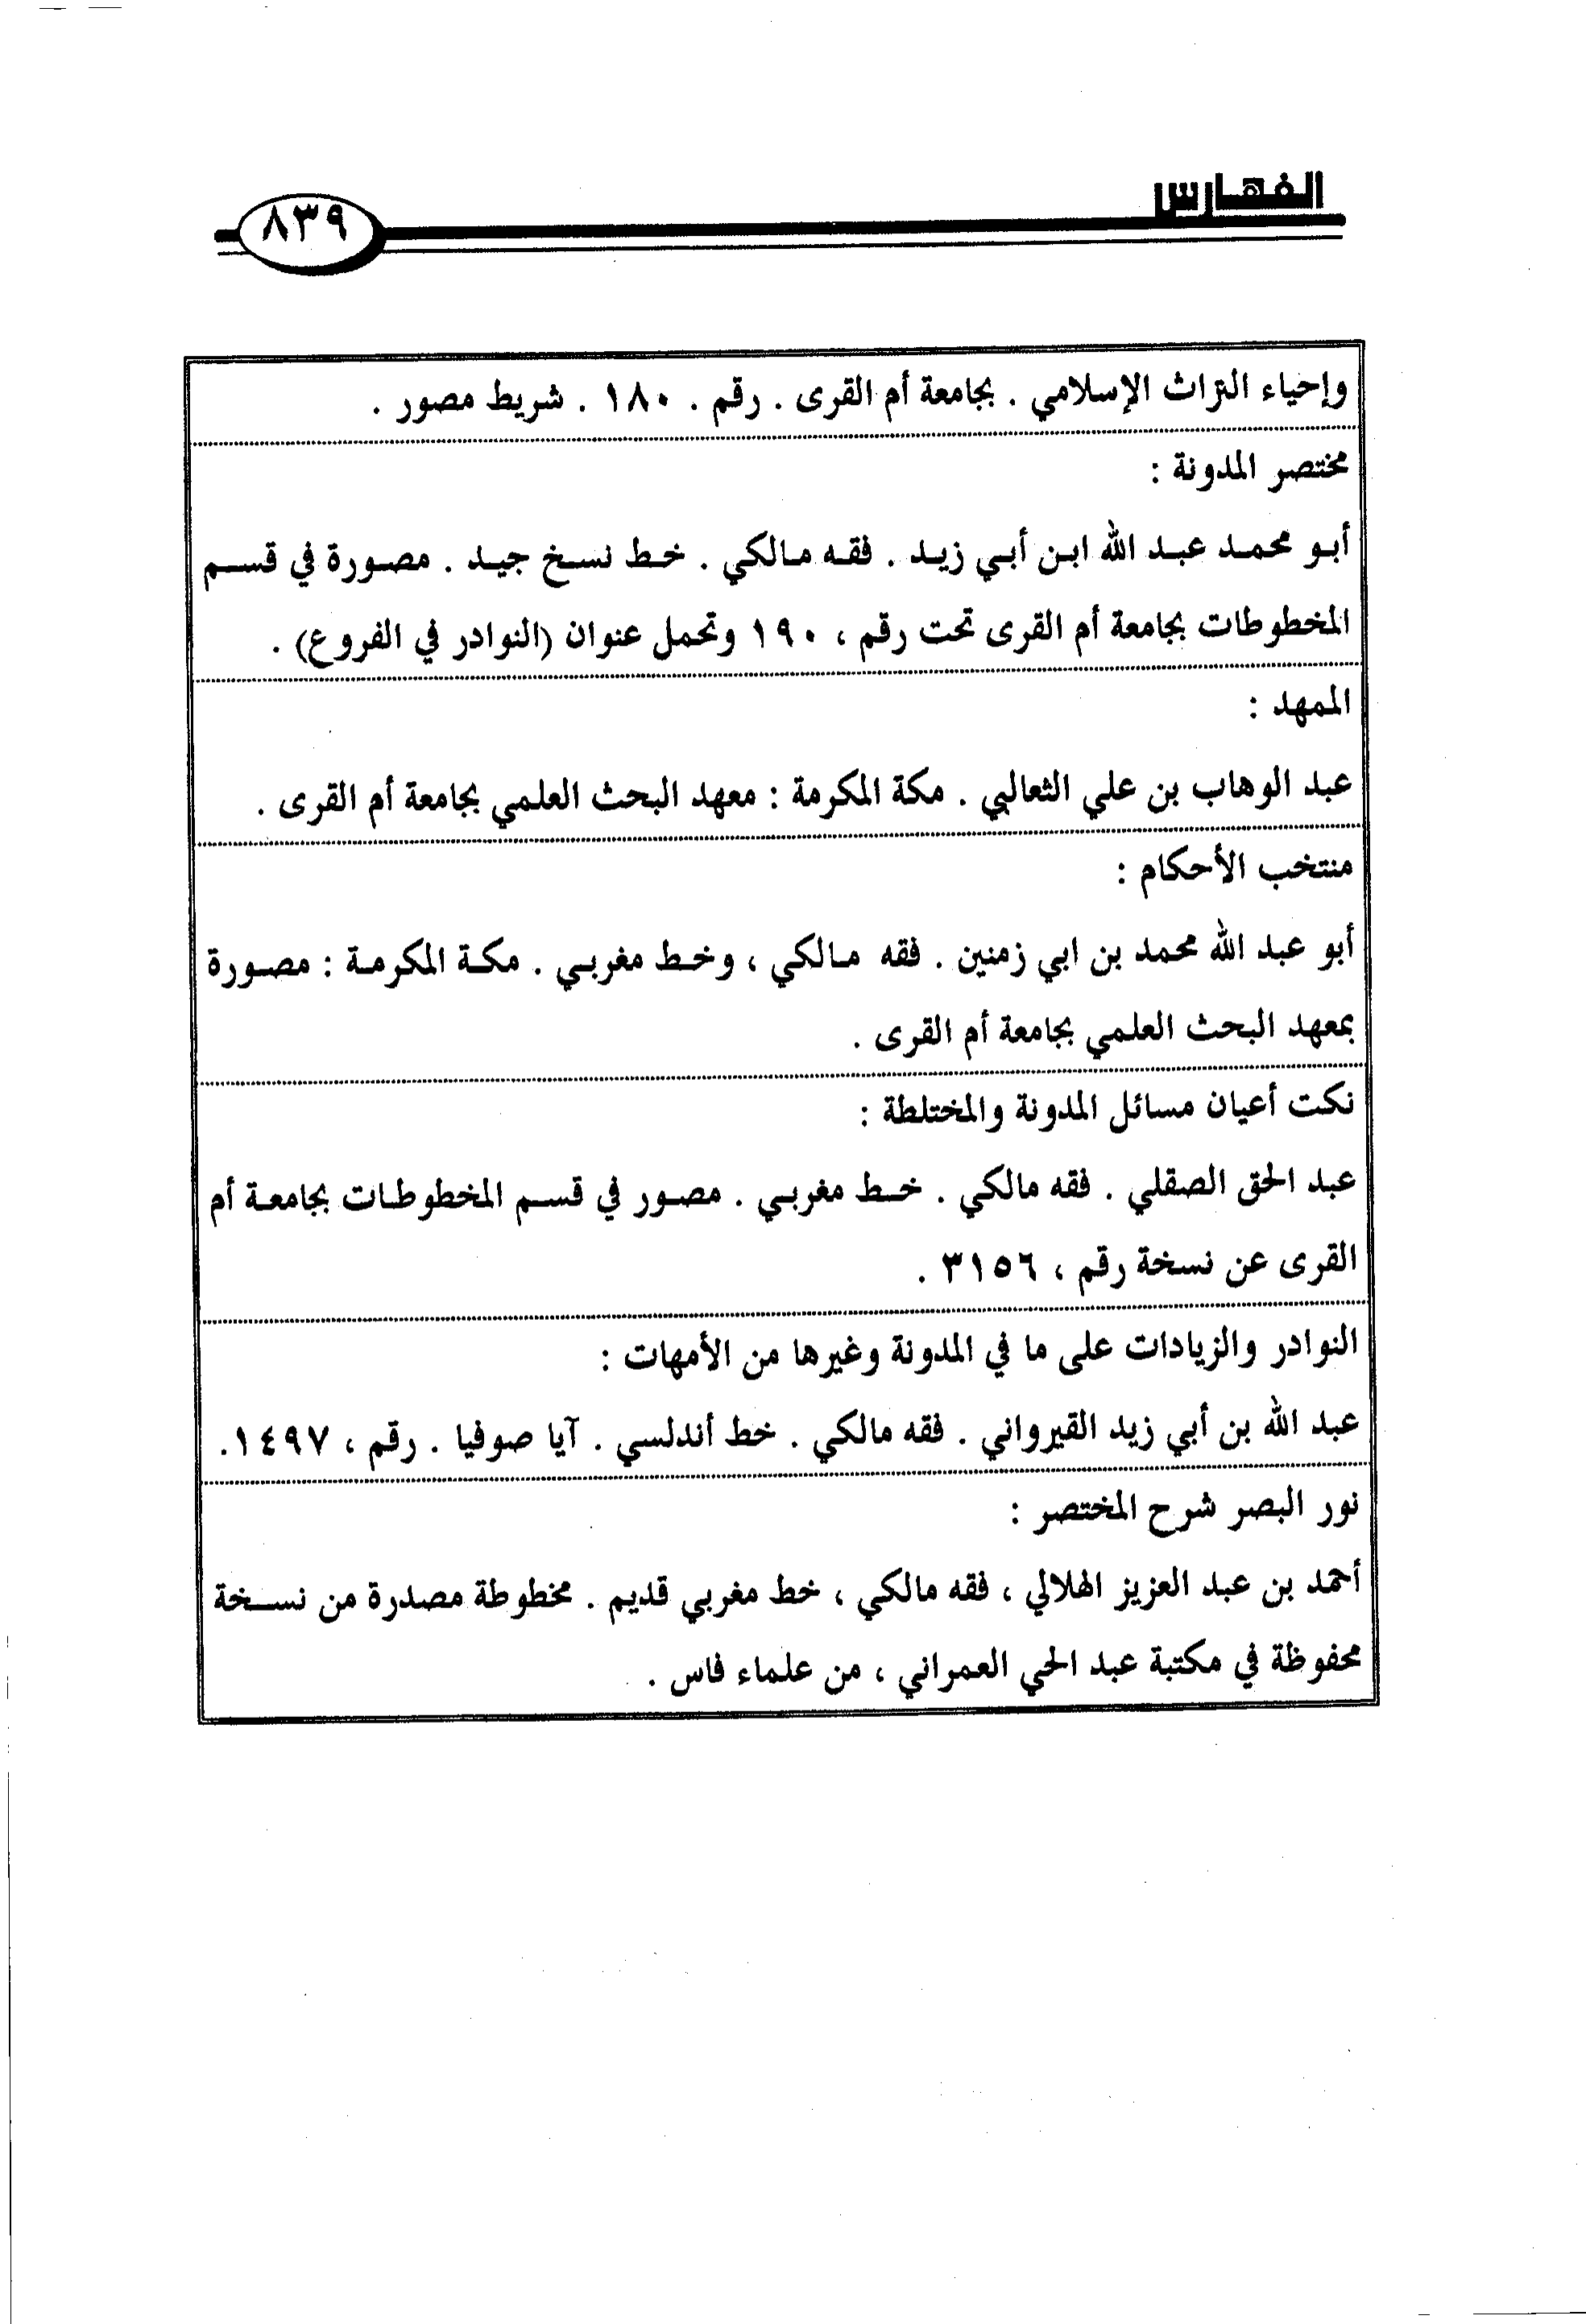 الفهارس
٨٣٩
وإحياء التراث الإسلامي . بجامعة أم القرى . رقم . ١٨٠ . شريط مصور .
مختصر المدونة :
أبو محمد عبد الله ابن أبي زيد . فقه مالكي . خط نسخ جيد . مصورة في قسم
المخطوطات بجامعة أم القرى تحت رقم ، ١٩٠ وتحمل عنوان (النوادر في الفروع) .
الممهد :
عبد الوهاب بن علي الثعالبي . مكة المكرمة : معهد البحث العلمي بجامعة أم القرى .
منتخب الأحكام :
أبو عبد الله محمد بن ابي زمنين . فقه مالكي ، وخط مغربي . مكة المكرمة : مصورة
بمعهد البحث العلمي بجامعة أم القرى .
نكت أعيان مسائل المدونة والمختلطة :
عبد الحق الصقلي . فقه مالكي . خط مغربي . مصور في قسم المخطوطات بجامعة أم
القرى عن نسخة رقم ، ٣١٥٦ .
النوادر والزيادات على ما في المدونة وغيرها من الأمهات :
عبد الله بن أبي زيد القيرواني . فقه مالكي . خط أندلسي . آيا صوفيا . رقم ، ١٤٩٧.
نور البصر شرح المختصر :
أحمد بن عبد العزيز الهلالي ، فقه مالكي ، خط مغربي قديم . مخطوطة مصدرة من نسخة
محفوظة في مكتبة عبد الحي العمراني ، من علماء فاس .